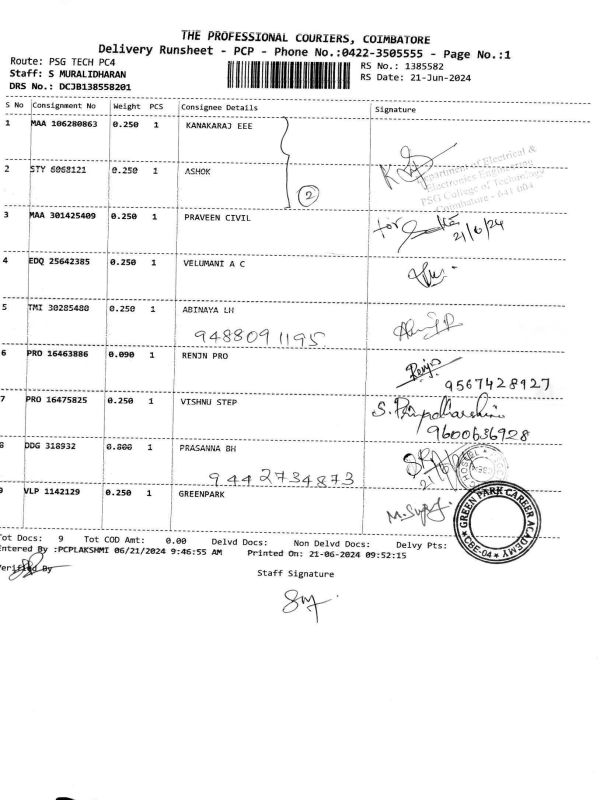 THE PROFESSIONAL COURIERS, COIMBATORE
Delivery Runsheet - PCP - Phone No.:0422-3505555 - Page No.:1
Route: PSG TECH PC4
Staff: S MURALIDHARAN
DRS No.: DCJB138558201
RS No.: 1385582
RS Date: 21-Jun-2024
S No Consignment No Weight PCS Consignee Details Signature
1 MAA 106280863 0.250 1 KANAKARAJ EEE
2 STY 6068121 0.250 1 ASHOK
2
Department of Electrical &
Electronics Engineering
PSG College of Technology
Coimbatore - 641 004
3 MAA 301425409 0.250 1 PRAVEEN CIVIL
for
21/6/24
4 EDQ 25642385 0.250 1 VELUMANI A C
5 TMI 30285480 0.250 1 ABINAYA LH
9488091195
6 PRO 16463886 0.090 1 RENJN PRO
Renjis
9567428927
7 PRO 16475825 0.250 1 VISHNU STEP
S. Priyadharshini
9600636928
8 DDG 318932 0.800 1 PRASANNA BH
9442734873
9 VLP 1142129 0.250 1 GREENPARK
GREEN PARK CAREER ACADEMY
CBE-04
Tot Docs: 9 Tot COD Amt: 0.00 Delvd Docs: Non Delvd Docs: Delvy Pts:
Entered By :PCPLAKSHMI 06/21/2024 9:46:55 AM Printed On: 21-06-2024 09:52:15
Verified By
Staff Signature